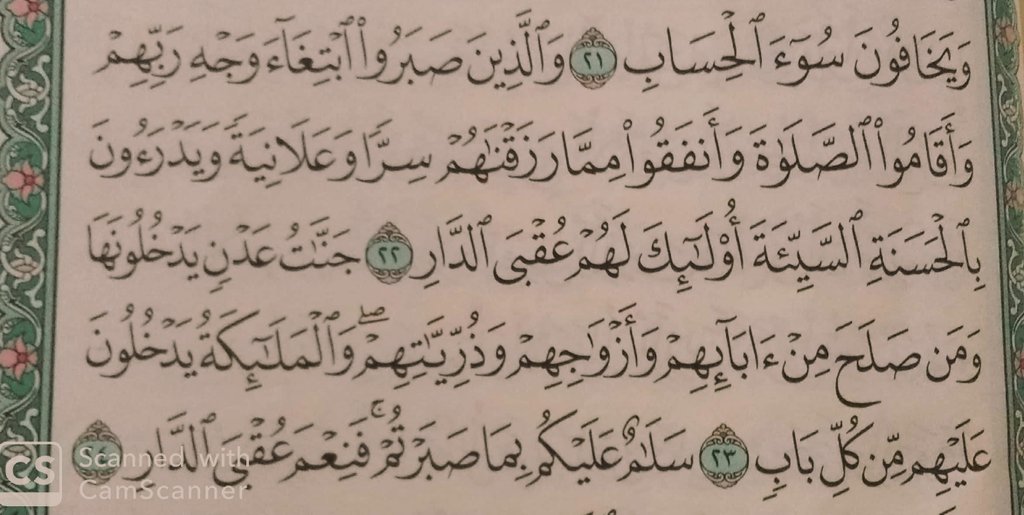 وَيَخَافُونَ سُوٓءَ ٱلْحِسَابِ ٢١ وَٱلَّذِينَ صَبَرُوا۟ ٱبْتِغَآءَ وَجْهِ رَبِّهِمْ
وَأَقَامُوا۟ ٱلصَّلَوٰةَ وَأَنفَقُوا۟ مِمَّا رَزَقْنَٰهُمْ سِرًّا وَعَلَانِيَةً وَيَدْرَءُونَ
بِٱلْحَسَنَةِ ٱلسَّيِّئَةَ أُو۟لَٰٓئِكَ لَهُمْ عُقْبَى ٱلدَّارِ ٢٢ جَنَّٰتُ عَدْنٍ يَدْخُلُونَهَا
وَمَن صَلَحَ مِنْ ءَابَآئِهِمْ وَأَزْوَٰجِهِمْ وَذُرِّيَّٰتِهِمْ ۖ وَٱلْمَلَٰٓئِكَةُ يَدْخُلُونَ
عَلَيْهِم مِّن كُلِّ بَابٍ ٢٣ سَلَٰمٌ عَلَيْكُم بِمَا صَبَرْتُمْ ۚ فَنِعْمَ عُقْبَى ٱلدَّارِ
CS Scanned with
CamScanner